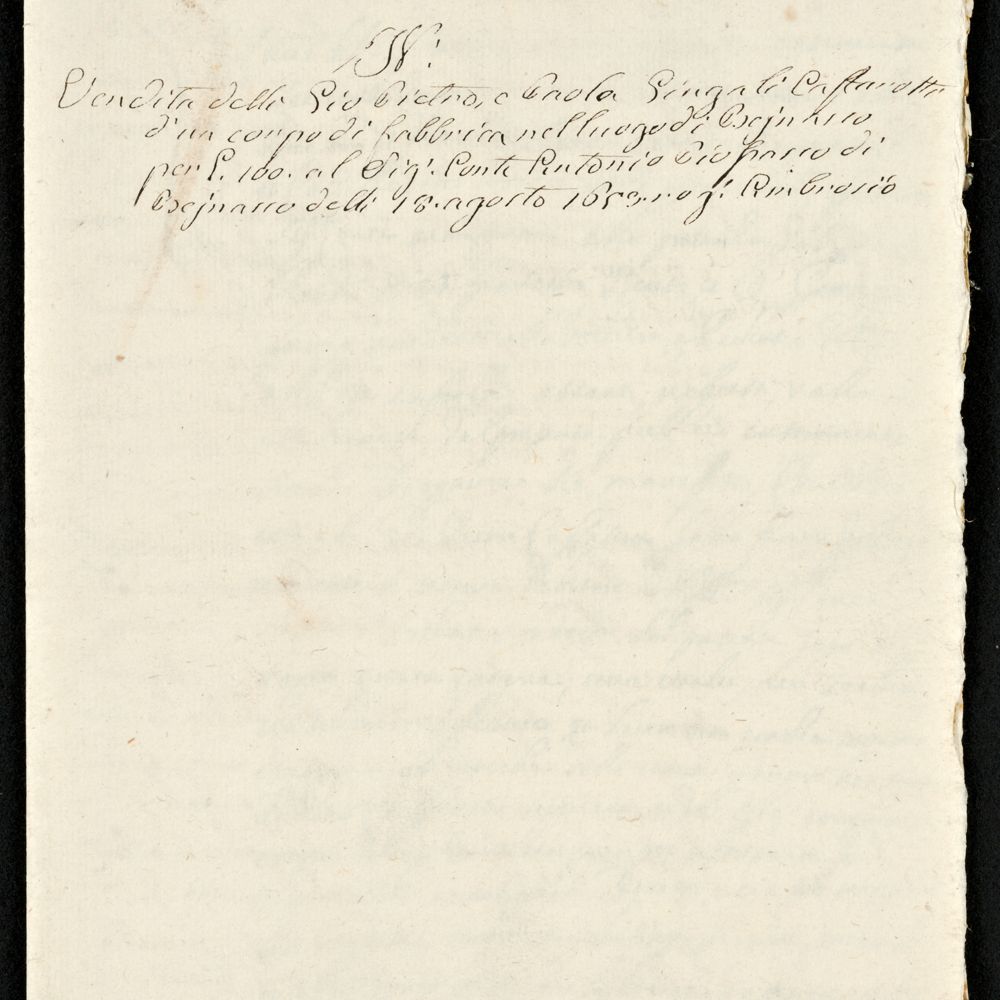 N.
Vendita delli Gio Pietro, e Paola Giugali Castarotti
d'un corpo di fabbrica nel luogo di Bejnasco
per L. 100. al Sig.r Conte Antonio Piossasco di
Bejnasco delli 18. agosto 1653. rog.° Ambrosio